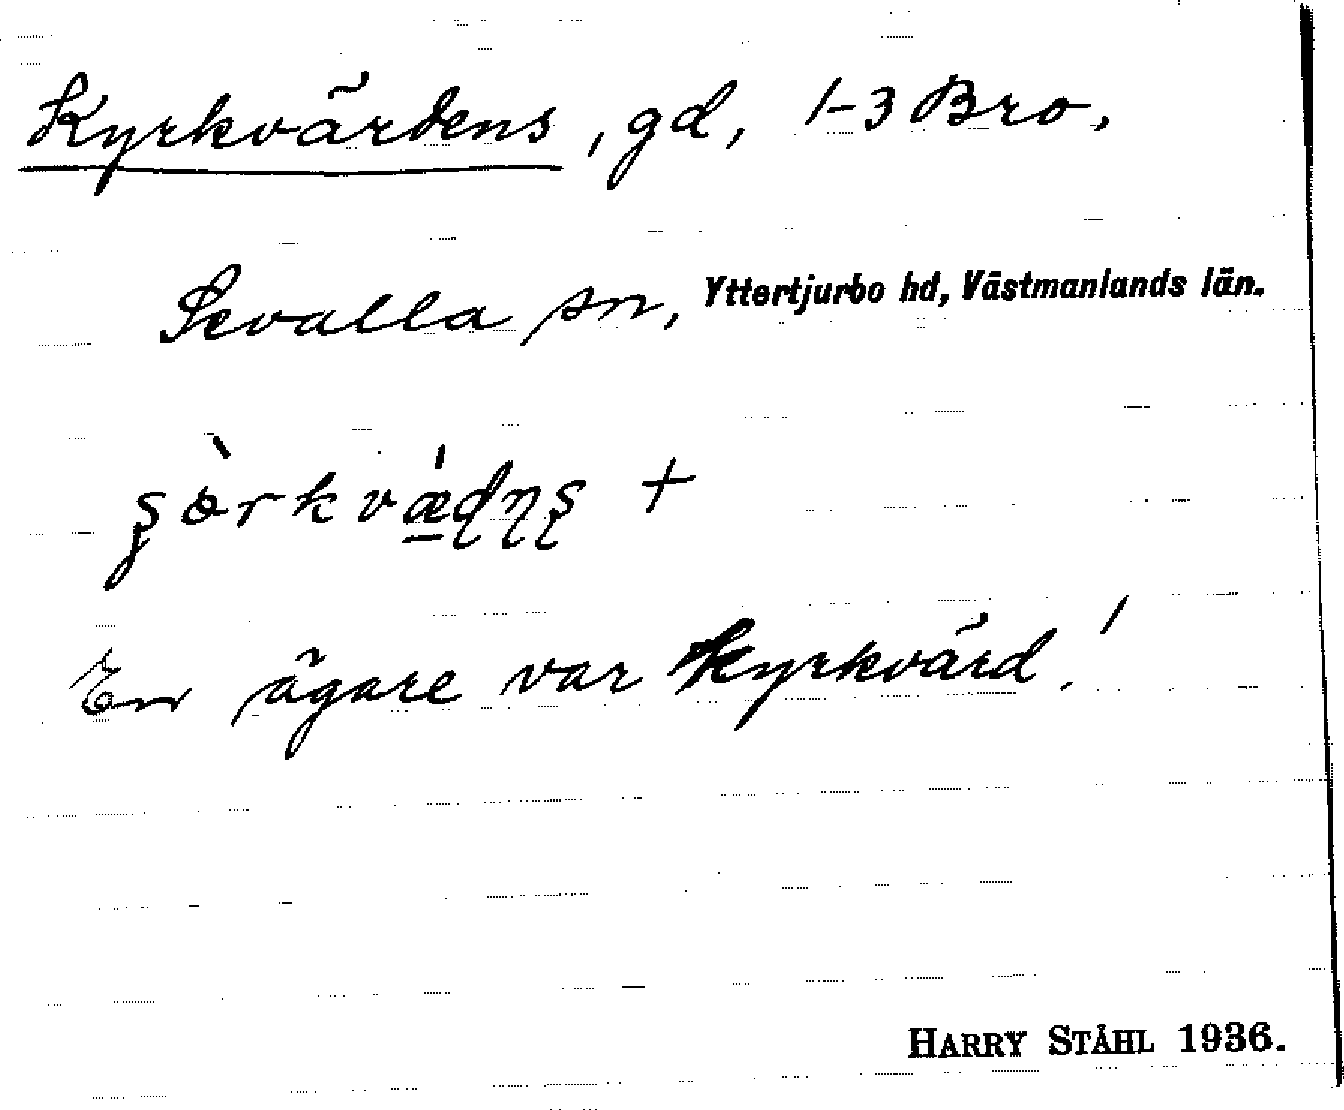 Kyrkvärdens, gd, 1-3 Bro,
Sevalla sn, Yttertjurbo hd, Västmanlands län.
En ägare var kyrkvärd!
HARRY STÅHL 1936.